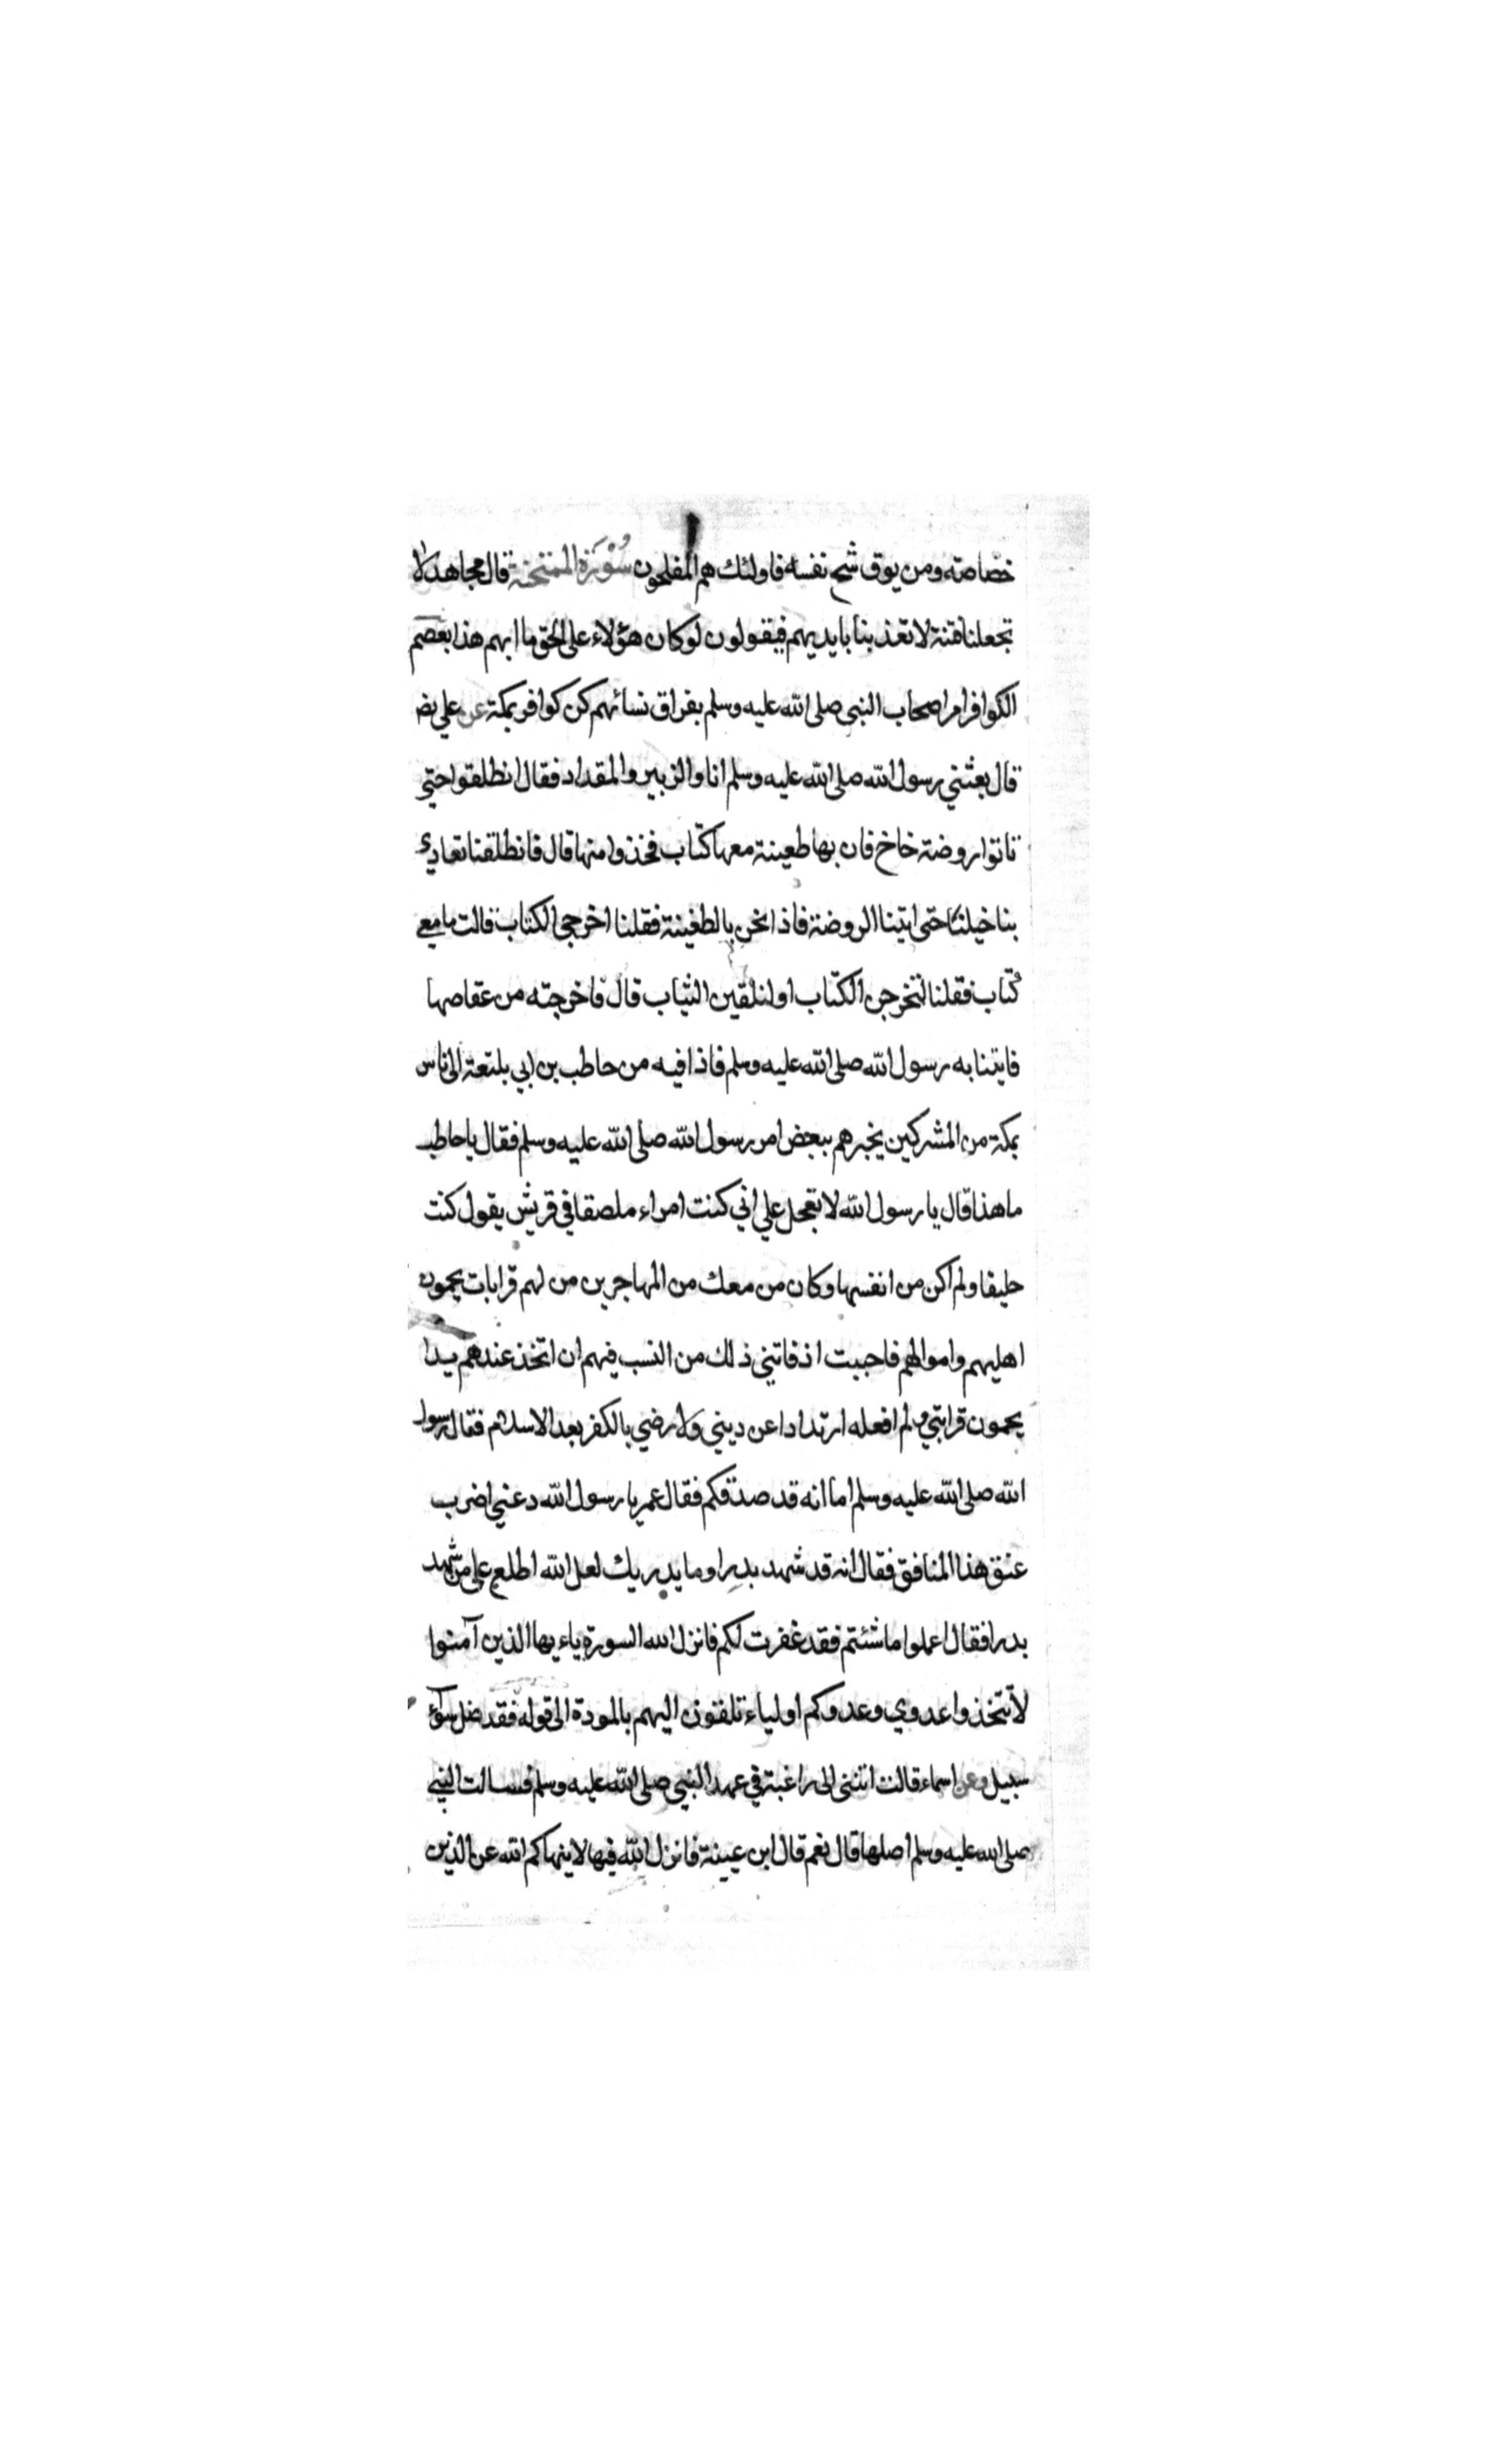 خصاصة ومن يوق شح نفسه فاولئك هم المفلحون سورة الممتحنة قال مجاهد لا
تجعلنا فتنة لا تعذبنا بايديهم فيقولون لو كان هؤلاء على الحق ما ابهم هذا بعصم
الكوافر امر اصحاب النبي صلى الله عليه وسلم بفراق نسائهم كن كوافر بمكة عن علي رضه
قال بعثني رسول الله صلى الله عليه وسلم انا والزبير والمقداد فقال انطلقوا حتى
تاتوا روضة خاخ فان بها ظعينة معها كتاب فخذوا منها قال فانطلقنا تعادي
بنا خيلنا حتى اتينا الروضة فاذا نحن بالظعينة فقلنا اخرجي الكتاب قالت ما معي
كتاب فقلنا لتخرجن الكتاب او لنلقين الثياب قال فاخرجته من عقاصها
فاتينا به رسول الله صلى الله عليه وسلم فاذا فيه من حاطب بن ابي بلتعة الى ناس
بمكة من المشركين يخبرهم ببعض امر رسول الله صلى الله عليه وسلم فقال يا حاطب
ما هذا قال يا رسول الله لا تعجل علي اني كنت امراء ملصقا في قريش يقول كنت
حليفا ولم اكن من انفسها وكان من معك من المهاجرين من لهم قرابات يحمون
اهليهم واموالهم فاحببت اذ فاتني ذلك من النسب فيهم ان اتخذ عندهم يدا
يحمون قرابتي ولم افعله ارتدادا عن ديني ولا رضي بالكفر بعد الاسلام فقال رسول
الله صلى الله عليه وسلم اما انه قد صدقكم فقال عمر يا رسول الله دعني اضرب
عنق هذا المنافق فقال انه قد شهد بدرا وما يدريك لعل الله اطلع على من شهد
بدرا فقال اعملوا ما شئتم فقد غفرت لكم فانزل الله السورة ياءيها الذين آمنوا
لا تتخذوا عدوي وعدوكم اولياء تلقون اليهم بالمودة الى قوله فقد ضل سوآء
سبيل وعن اسماء قالت اتتني الى راغبة في عهد النبي صلى الله عليه وسلم فسالت النبي
صلى الله عليه وسلم اصلها قال نعم قال ابن عيينة فانزل الله فيها لا ينهاكم الله عن الذين